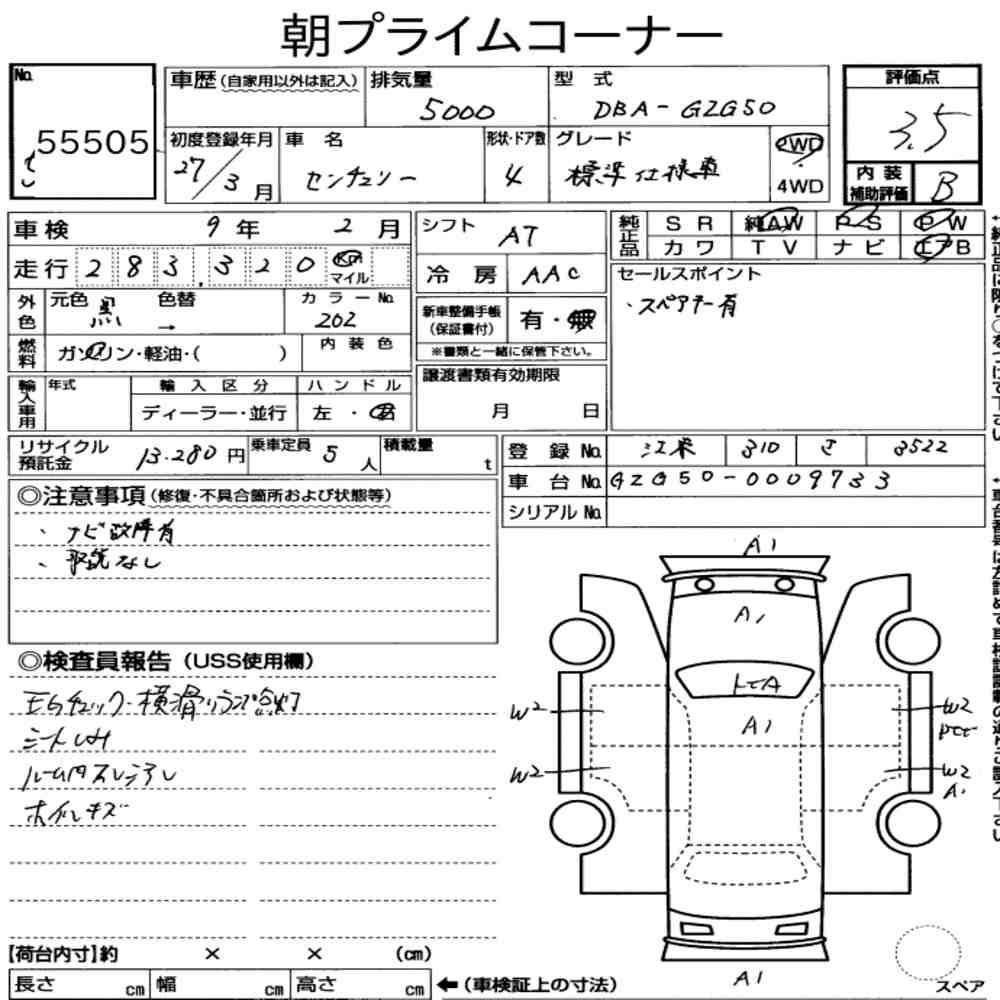 朝プライムコーナー
No.
55505
車歴(自家用以外は記入)
排気量
5000
型 式
DBA-GZG50
評価点
3.5
初度登録年月
27/3月
車 名
センチュリー
形状・ドア数
4
グレード
標準仕様車
2WD
4WD
内装補助評価
B
車検 9年 2月
走行 283,320 Km マイル
シフト AT
冷 房 AAC
純正品
S R 純AW P S P W
カ ワ T V ナ ビ エアB
セールスポイント
・スペアキー有
外色
元色 黒 → 色替
カラーNo. 202
燃料
ガソリン・軽油・( )
内 装 色
新車整備手帳(保証書付) 有・無
※書類と一緒に保管下さい。
譲渡書類有効期限
月 日
輸入車用
年式
輸 入 区 分
ディーラー・並行
ハ ン ド ル
左 ・ 右
リサイクル預託金 13.280円
乗車定員 5人
積載量 t
登 録 No. 310 さ 3522
車 台 No. GZG50-0009733
シリアルNo.
◎注意事項(修復・不具合箇所および状態等)
、ナビ故障有
、取説なし
◎検査員報告(USS使用欄)
横滑りランプ点灯
シートしみ
ルーム内スレ
ホイルキズ
A1
A1
A1
W2
W2
W2
W2
A1
A1
【荷台内寸】約 × × (cm)
長さ cm 幅 cm 高さ cm
←(車検証上の寸法)
スペア